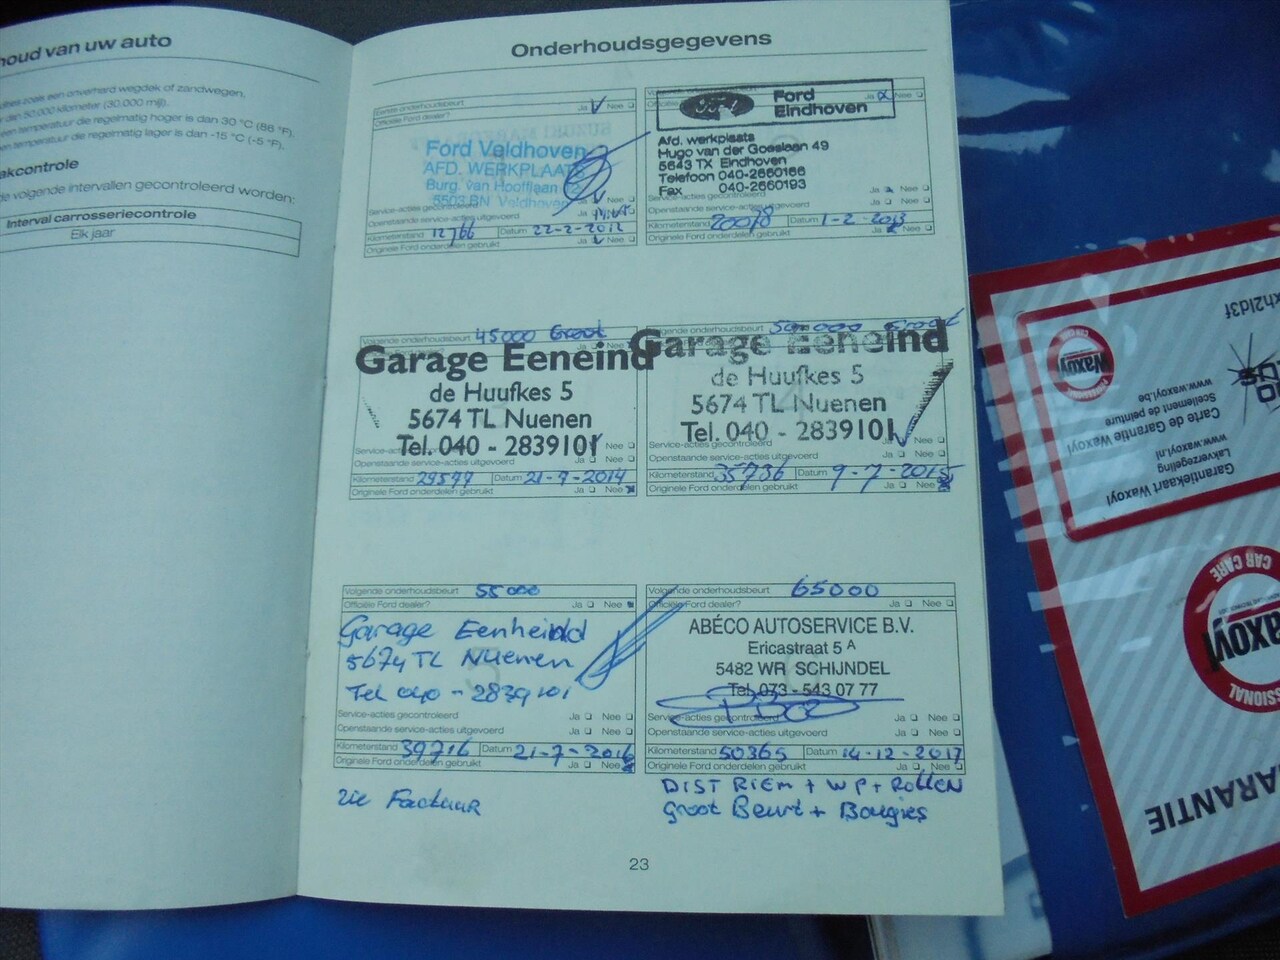 houd van uw auto
dities zoals een onverhard wegdek of zandwegen,
dan 50.000 kilometer (30.000 mijl).
een temperatuur die regelmatig hoger is dan 30 °C (86 °F).
en temperatuur die regelmatig lager is dan -15 °C (-5 °F).
akcontrole
de volgende intervallen gecontroleerd worden:
Interval carrosseriecontrole
Elk jaar
Onderhoudsgegevens
Eerste onderhoudsbeurt Ja Nee
Officiële Ford dealer?
Ford Veldhoven
AFD. WERKPLAATS
Burg. van Hoofflaan
5503 BN Veldhoven
Service-acties gecontroleerd
Openstaande service-acties uitgevoerd Ja
Kilometerstand 12766 Datum 22-2-2012
Originele Ford onderdelen gebruikt Ja Nee
Ford
Ford
Eindhoven
Ja Nee
Afd. werkplaats
Hugo van der Goeslaan 49
5643 TX Eindhoven
Telefoon 040-2660166
Fax 040-2660193
Service-acties gecontroleerd Ja Nee
Openstaande service-acties uitgevoerd
Kilometerstand 20078 Datum 1-2-2013
Originele Ford onderdelen gebruikt Ja Nee
Volgende onderhoudsbeurt 45000 Groot
Garage Eeneind
de Huufkes 5
5674 TL Nuenen
Tel. 040 - 2839101
Nee
Openstaande service-acties uitgevoerd Ja Nee
Kilometerstand 29597 Datum 21-9-2014
Originele Ford onderdelen gebruikt Ja Nee
Volgende onderhoudsbeurt
Garage Eeneind
de Huufkes 5
5674 TL Nuenen
Tel. 040 - 2839101
Service-acties gecontroleerd Nee
Openstaande service-acties uitgevoerd Ja Nee
Kilometerstand 35736 Datum 9-7-2015
Originele Ford onderdelen gebruikt Ja Nee
Volgende onderhoudsbeurt 55000
Officiële Ford dealer? Ja Nee
Garage Eenheind
5674 TL Nuenen
Tel 040 - 2839101
Service-acties gecontroleerd Ja Nee
Openstaande service-acties uitgevoerd Ja Nee
Kilometerstand 39716 Datum 21-7-2016
Originele Ford onderdelen gebruikt Ja Nee
zie Factuur
Volgende onderhoudsbeurt 65000
Officiële Ford dealer? Ja Nee
ABÉCO AUTOSERVICE B.V.
Ericastraat 5 A
5482 WR SCHIJNDEL
Tel. 073 - 543 07 77
Service-acties gecontroleerd Ja Nee
Openstaande service-acties uitgevoerd Ja Nee
Kilometerstand 50365 Datum 14-12-2017
Originele Ford onderdelen gebruikt Ja Nee
DIST RIEM + WP + ROLLEN
Groot Beurt + Bougies
23
xh2ld3f
Garantiekaart Waxoyl
Lakverzegeling
www.waxoyl.nl
Carte de Garantie Waxoyl
Scellement de peinture
www.waxoyl.be
Waxoyl
CAR CARE
Waxoyl
GARANTIE